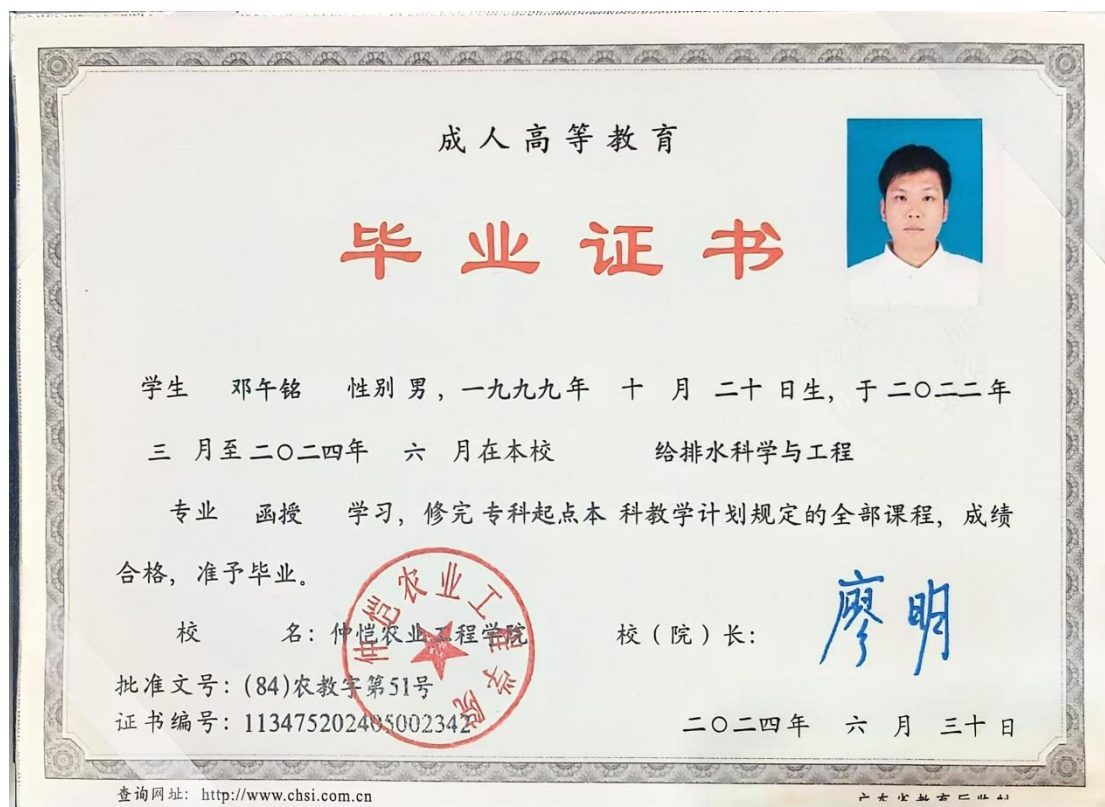 成人高等教育
毕业证书
学生 邓午铭 性别 男，一九九九年 十 月 二十 日生，于 二〇二二年
三 月至 二〇二四年 六 月在本校 给排水科学与工程
专业 函授 学习，修完 专科起点本 科教学计划规定的全部课程，成绩
合格，准予毕业。
仲恺农业工程学院
校 名：仲恺农业工程学院 校（院）长：廖明
批准文号：(84)农教字第51号
证书编号：113475202405002342 二〇二四年 六 月 三十 日
查询网址：http://www.chsi.com.cn 广东省教育厅监制